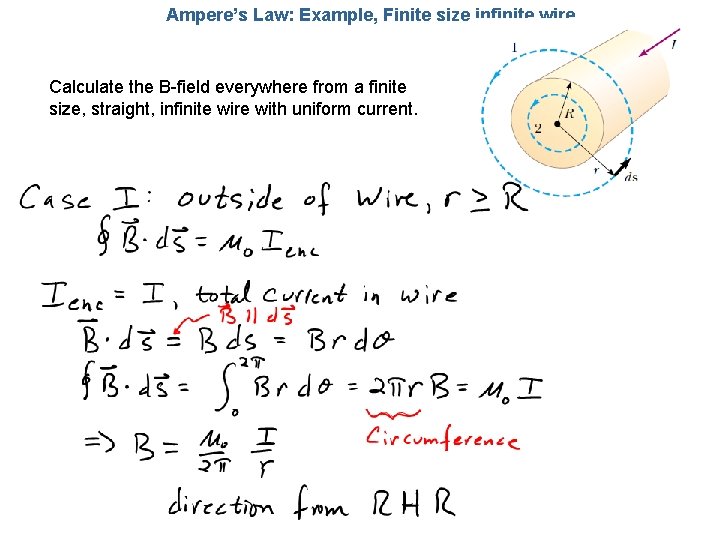 Ampere's Law: Example, Finite size infinite wire
Calculate the B-field everywhere from a finite
size, straight, infinite wire with uniform current.
1
I
R
2
r
ds
Case I: outside of wire, r ≥ R
∮ B⃗ · ds⃗ = μ₀ I_enc
I_enc = I, total current in wire
B⃗ ∥ ds⃗
B⃗ · ds⃗ = B ds = B r dθ
∮ B⃗ · ds⃗ = ∫₀^2π B r dθ = 2πr B = μ₀ I
Circumference
⇒ B = μ₀/2π I/r
direction from RHR